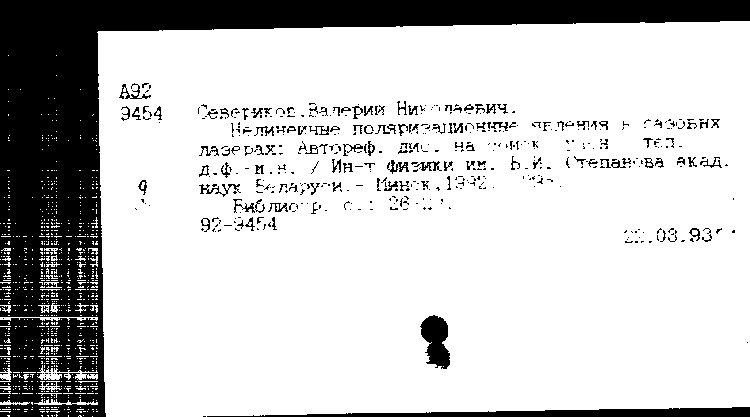 А92
9454 Севериков,Валерий Николаевич.
Нелинейные поляризационные явления в газовых
лазерах: Автореф. дис. на соиск. учен. степ.
д.ф.-м.н. / Ин-т физики им. Б.И. Степанова акад.
наук Беларуси.- Минск,1992.
Библиогр. с.: 26-
92-9454
22.03.93